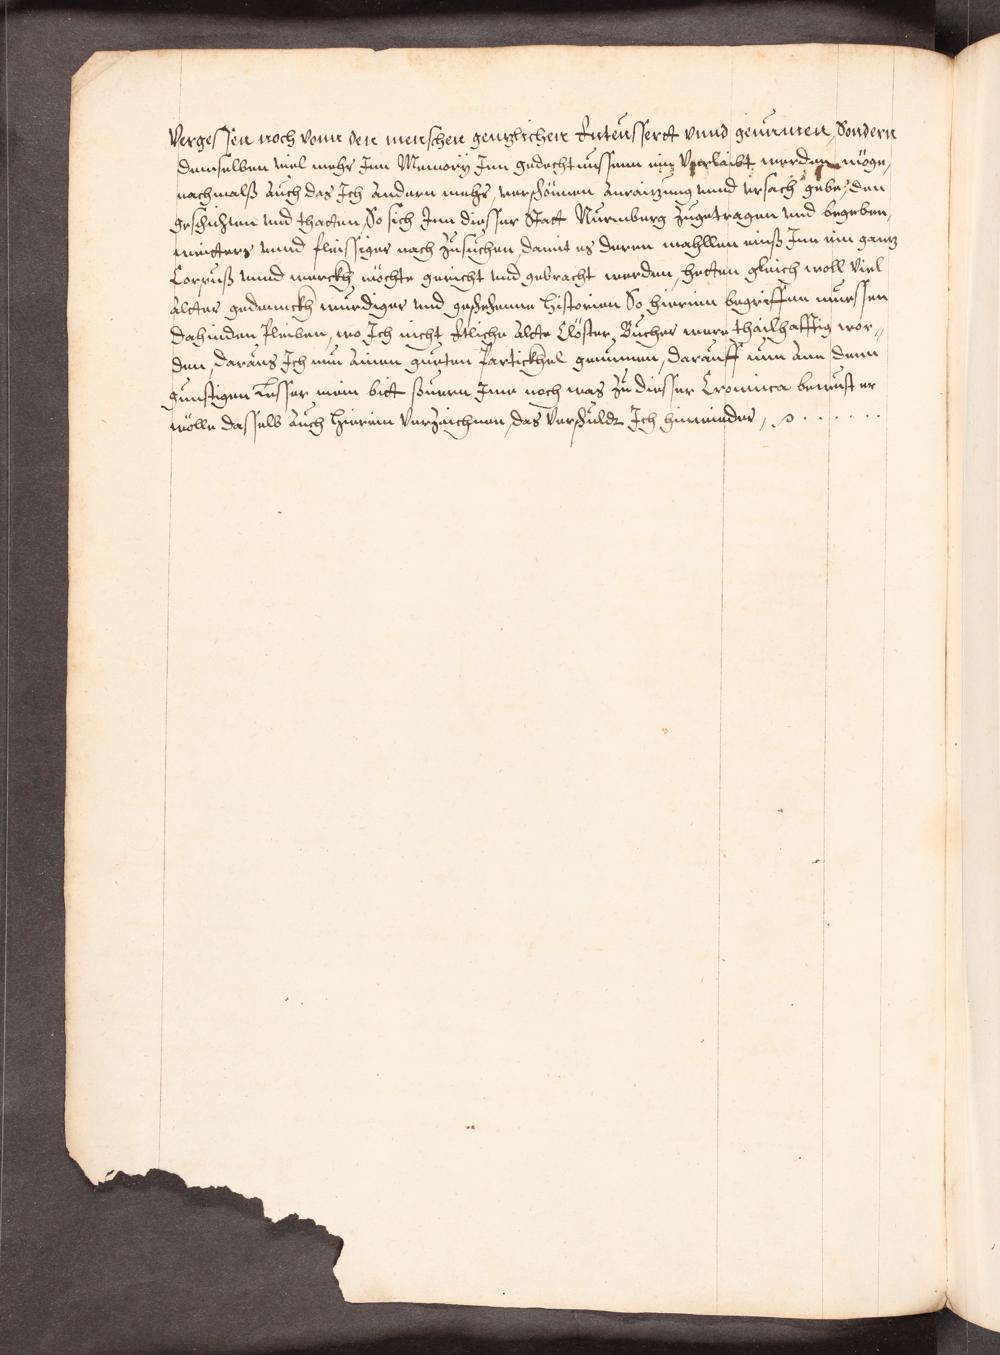 Vergessen noch vonn den menschen gentzlichen Enteussertt vnnd genumen, Sondern
demselben viel mehr Inn Memory Inn gedechtnussenn ein Verleibt werden möge,
nachmalß auch das Ich Andern mehr, verstönnen Anraitzung vnnd vrsach gebe, den
geschichten vnd thatten, So sich Inn dieser Statt Nurmburg zugetragen vnd begeben,
weitters vnnd fleissiger nach zusuchen, damit es deren mahllen einß Inn ein gantz
Corpuß vnnd werckh möchte gericht vnd gebracht werden, hetten gleich woll viel
alter gedenckh wurdiger vnd geschehenne historien So hierinn begriffen muessen
dahinden Pleiben, wo Ich nicht Etliche alte Clöster Bucher were thailhafftig wor-
den, daraus Ich nun Ainen gueten Partickhel genumen, darauff nun Ann denn
gunstigen Lesser mein bitt sovern Ime noch was zu dieser Cronnica bewust er
wölle dasselb auch hierein Verzaichnen, das Verschuldt Ich hinwieder,